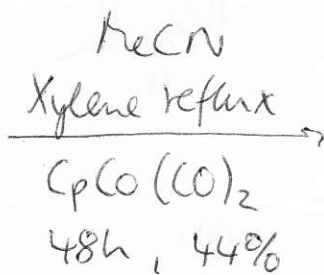 MeCN
Xylene reflux
CpCo(CO)2
48h, 44%